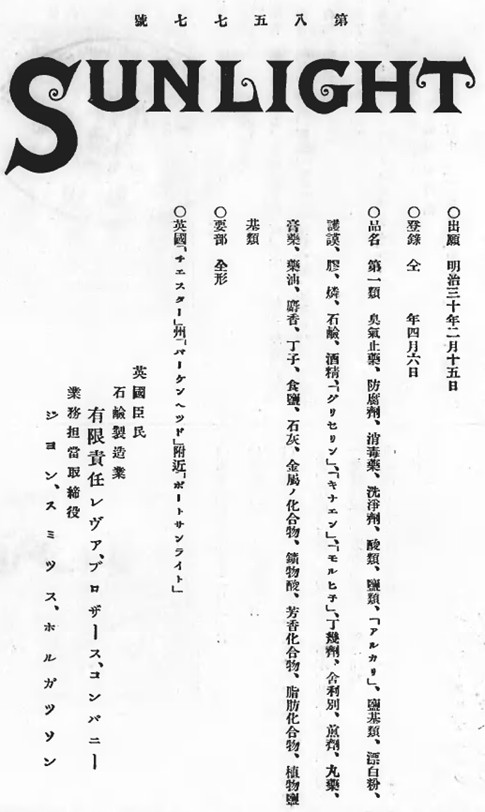 第八五七七號
SUNLIGHT
〇出願 明治三十年二月十五日
〇登錄 仝 年四月六日
〇品名 第一類 臭氣止藥、防腐劑、消毒藥、洗淨劑、酸類、鹽類、「アルカリ」、鹽基類、漂白粉、
護謨、膠、燐、石鹼、酒精、「グリセリン」、「キナエン」、「モルヒ子」、丁幾劑、舍利別、煎劑、丸藥、
膏藥、藥油、麝香、丁子、食鹽、石灰、金屬ノ化合物、鑛物酸、芳香化合物、脂肪化合物、植物鹽
基類
〇要部 全形
〇英國「チエスター」州「バーケンヘツド」附近「ポートサンライト」
英國臣民
石鹼製造業
有限責任レヴァ、ブロザース、コンパニー
業務担當取締役
ジヨン、スミツス、ホルガツソン